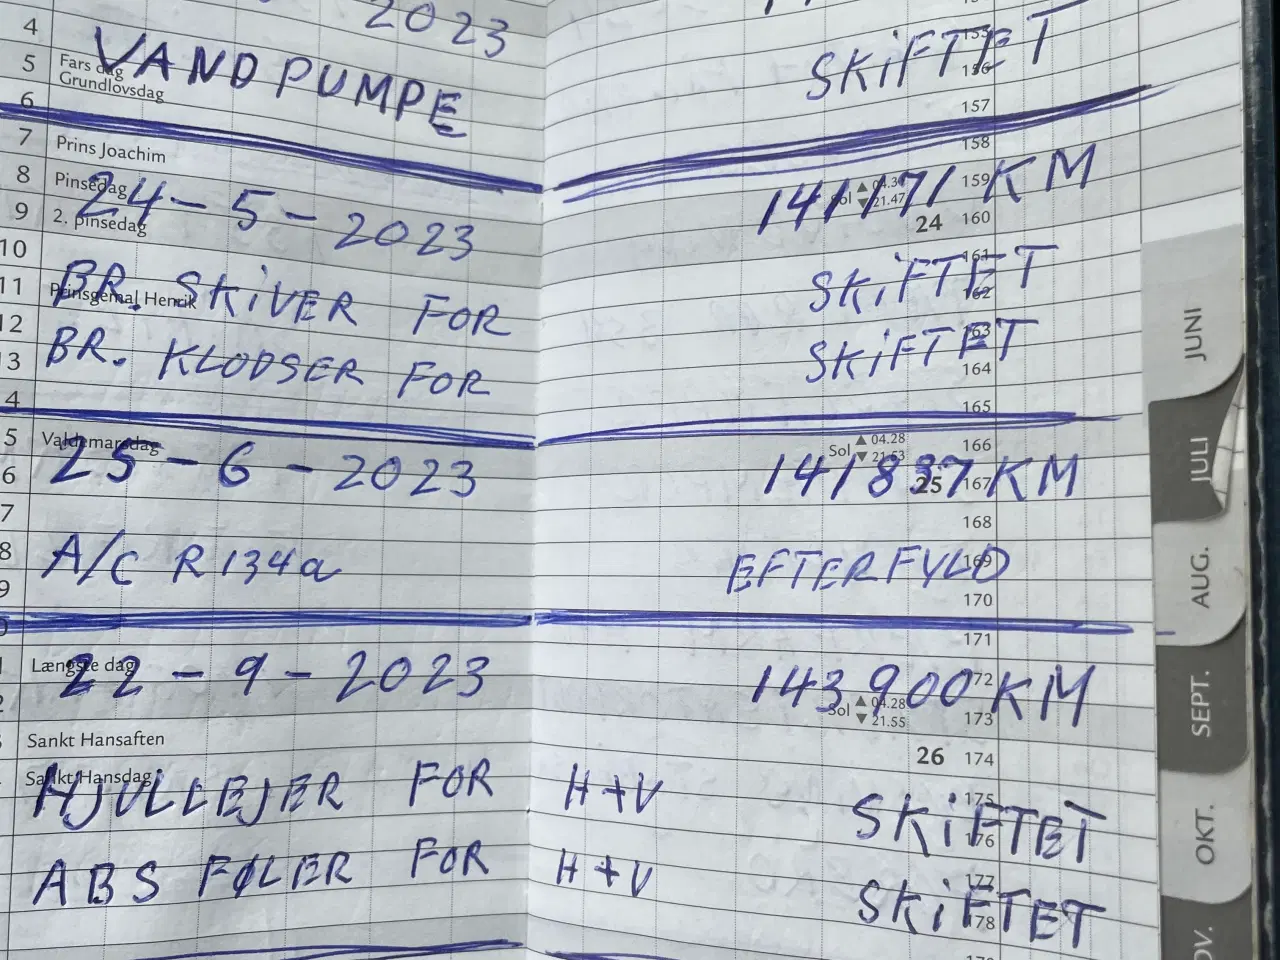 2023
4
VANDPUMPE SKiFTET
5 Fars dag
Grundlovsdag 156
6 157
7 Prins Joachim 158
8 Pinsedag 159
24-5-2023 141171 KM
9 2. pinsedag 24 160
Sol ▲ 04.30
▼ 21.47
10 161
BR. SKiVER FOR SKiFTET
11 Prinsgemal Henrik 162
12 163
BR. KLODSER FOR SKiFTET
13 164
4 165
5 Valdemarsdag 166
Sol ▲ 04.28
▼ 21.53
25-6-2023 141837 KM
6 25 167
7 168
8 169
A/C R134a EFTERFYLD
9 170
171
Længste dag 172
22-9-2023 143900 KM
Sol ▲ 04.28
▼ 21.55
173
Sankt Hansaften 26 174
Sankt Hansdag 175
HJULLEJER FOR H+V SKiFTET
176
177
ABS FØLER FOR H+V SKiFTET
178
JUNI
JULI
AUG.
SEPT.
OKT.